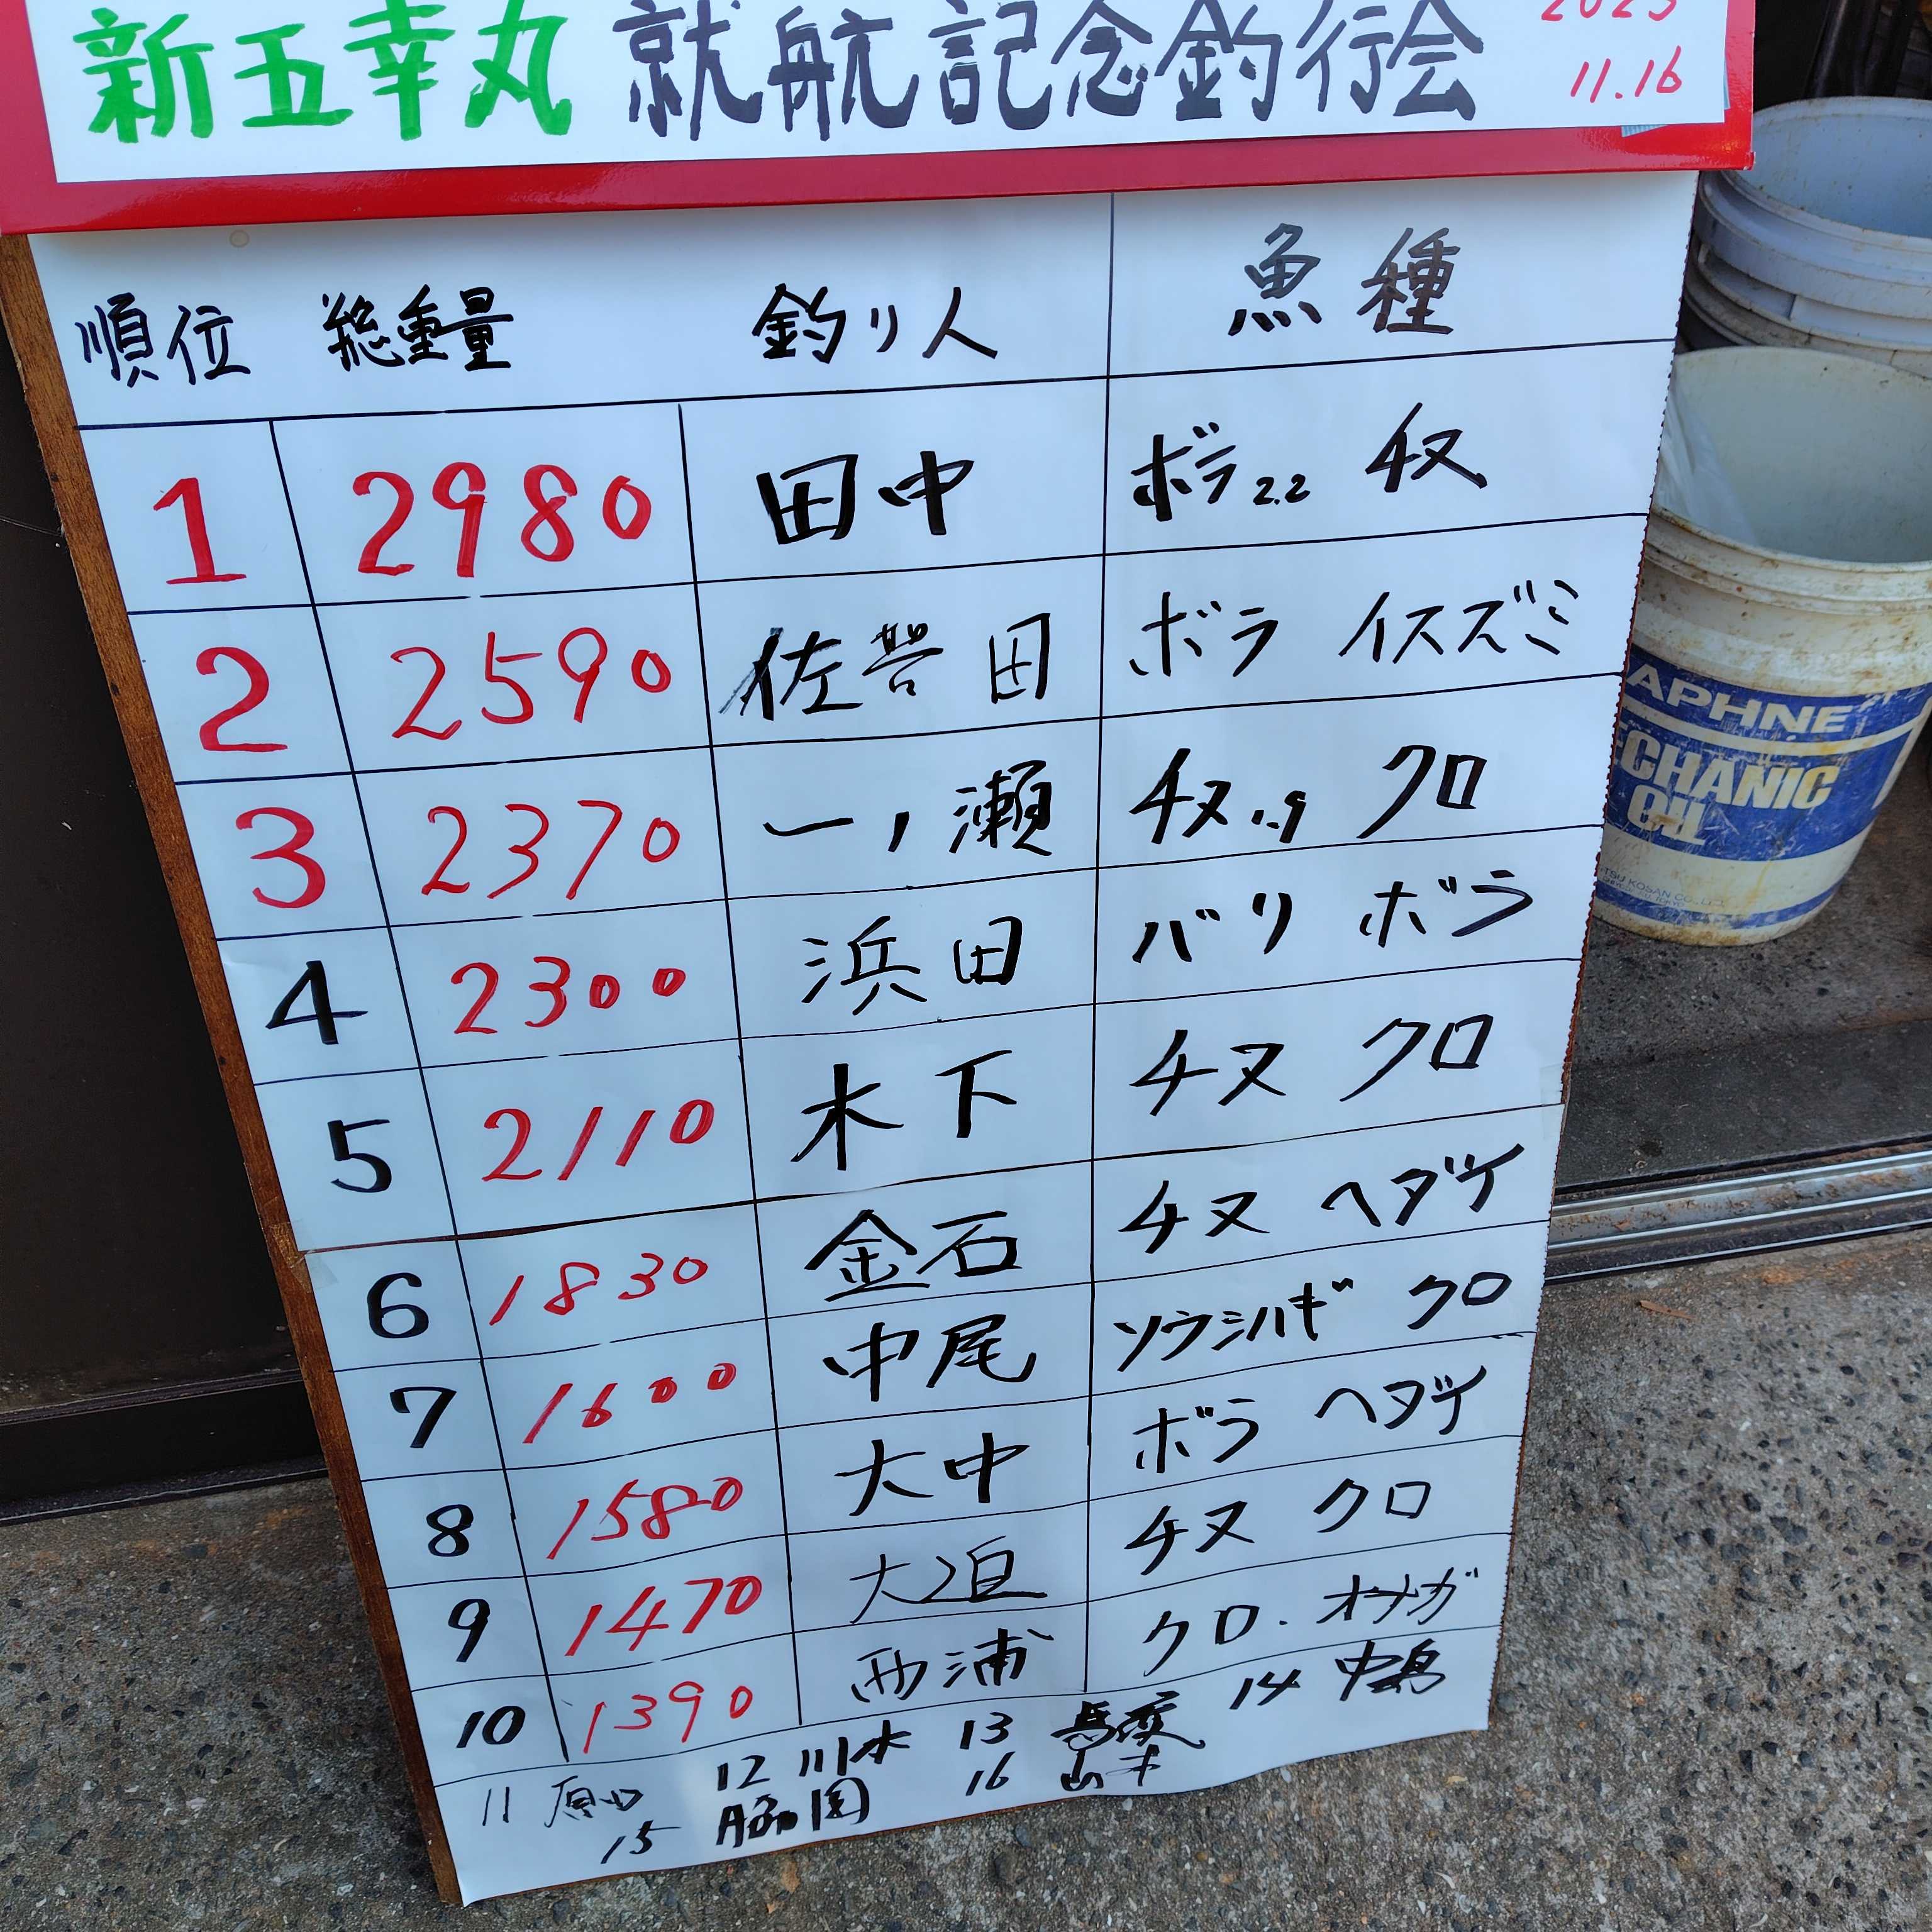 新五幸丸 就航記念釣行会
11.16
順位 総重量 釣り人 魚種
1 2980 田中 ボラ2.2 チヌ
2 2590 佐誉田 ボラ イスズミ
3 2370 一ノ瀬 チヌ1.9 クロ
4 2300 浜田 バリ ボラ
5 2110 木下 チヌ クロ
6 1830 金石 チヌ ヘダイ
7 1600 中尾 ソウシハギ クロ
8 1580 大中 ボラ ヘダイ
9 1470 大迫 チヌ クロ
10 1390 西浦 クロ.オナガ
11 原口 12 川本 13 14 中島
15 16 山本
APHNE
ECHANIC
OIL